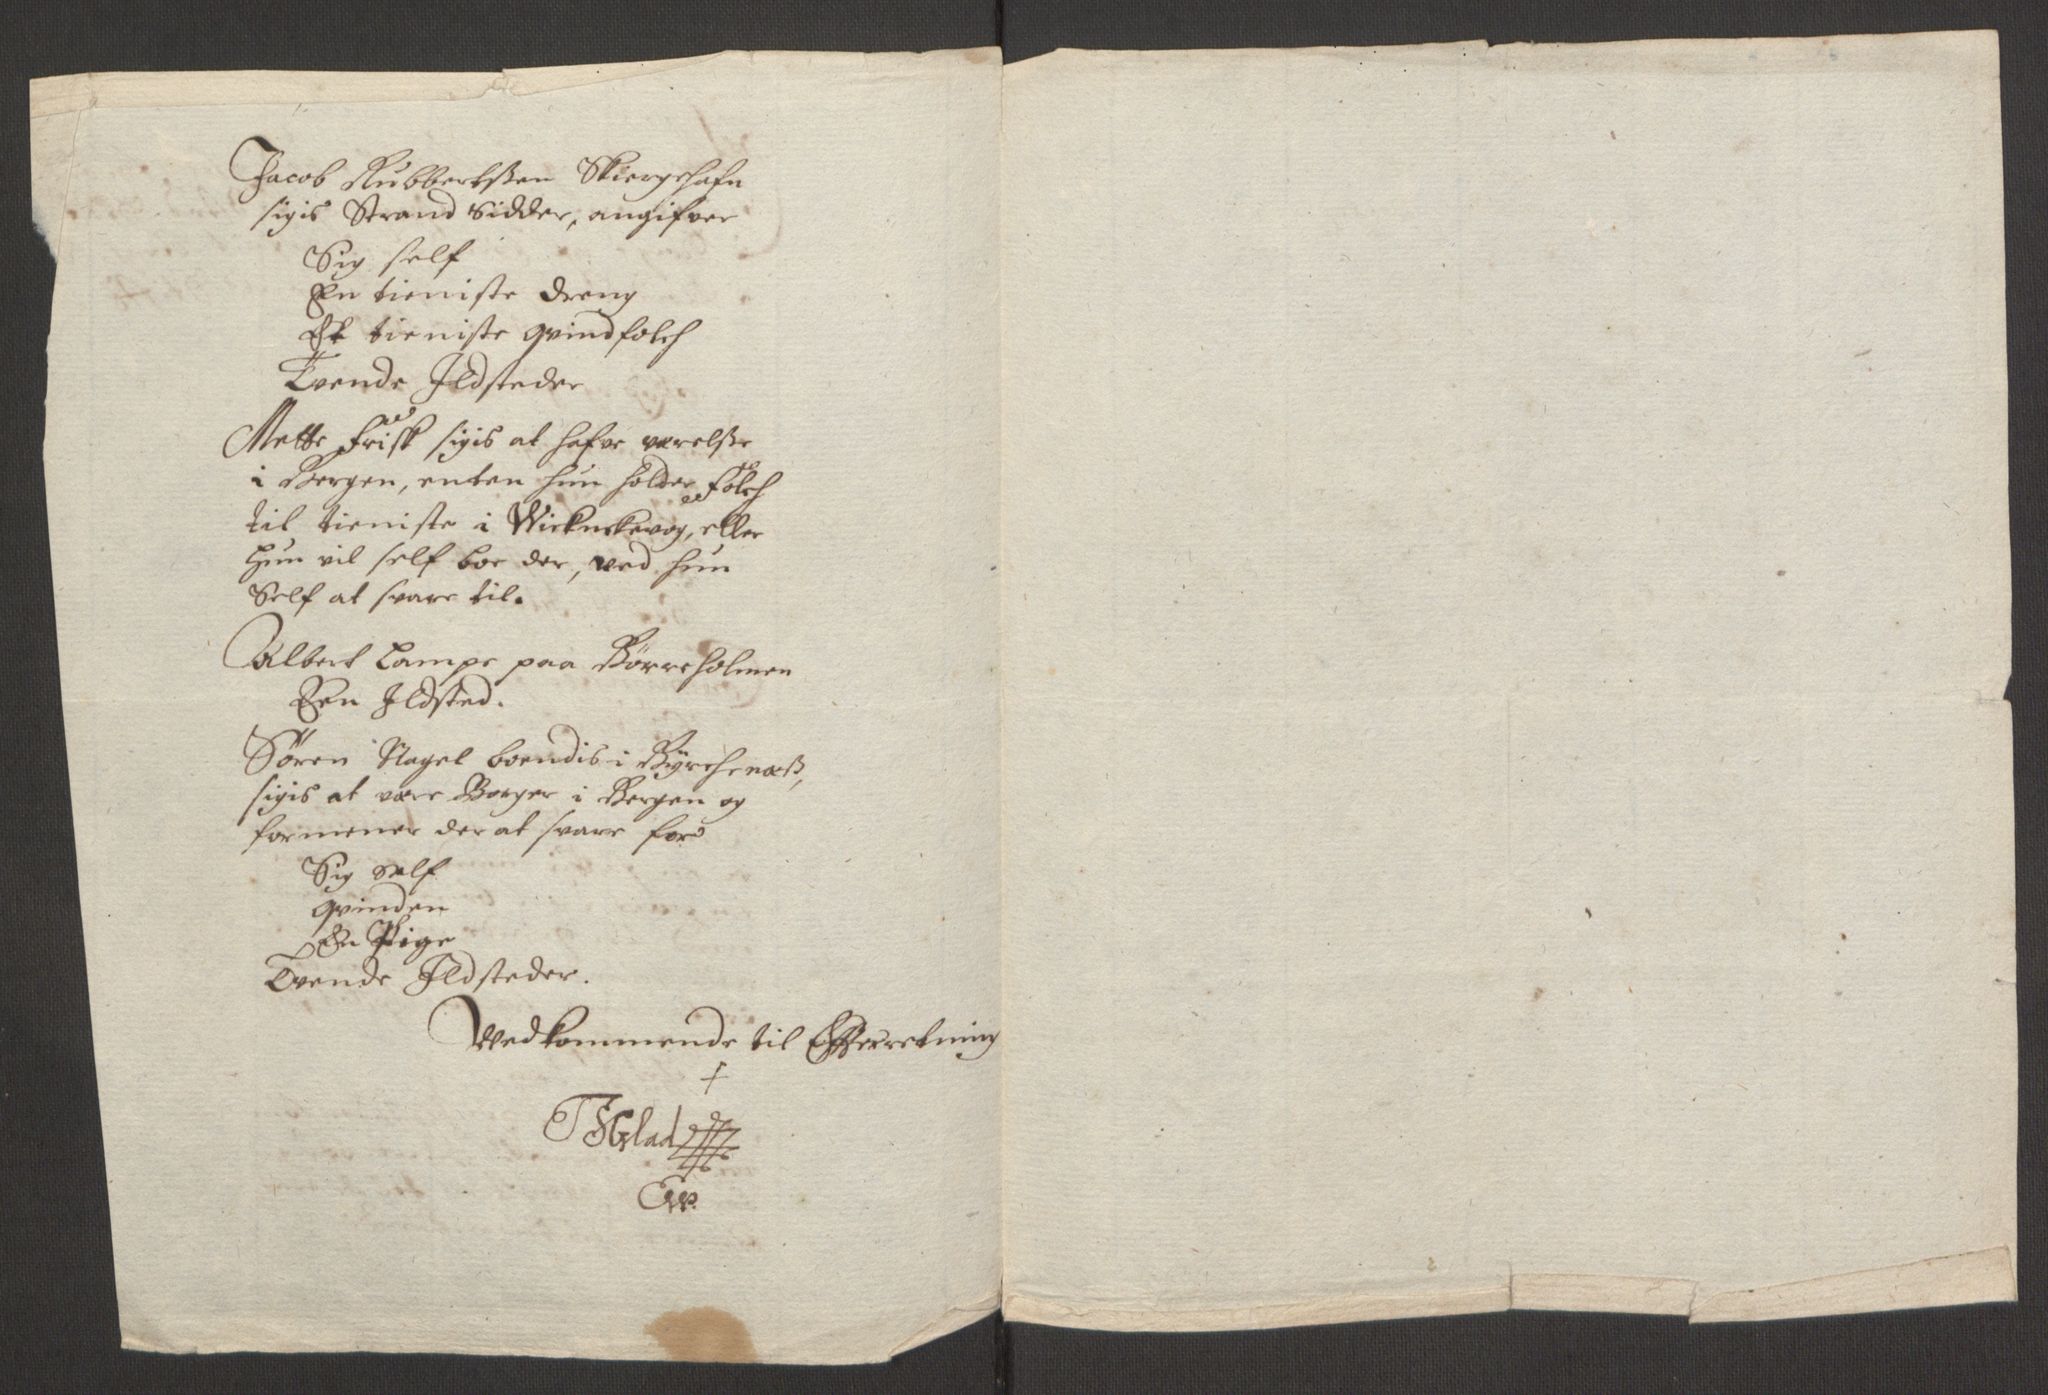 Jacob Rubbertßen Skiergehafn
sigis Strand Sidder, angifver
Sig self
En tieniste dreng
Et tieniste qvindfolch
Tvende Ildsteder
Mette Frisk sigis at hafve værelße
i Bergen, enten hun holder Folch
til tieniste i, eller
hun vil self boe der, ved hun
Self at svare til.
Albert Lampe paa Börreholmen
Een Ildsted.
Sören Nagel boendis i Byrchenæß,
sigis at være Borger i Bergen og
formener der at svare for
Sig self
qvinden
En Pige
Tvende Ildsteder.
Vedkommende til Efterretning